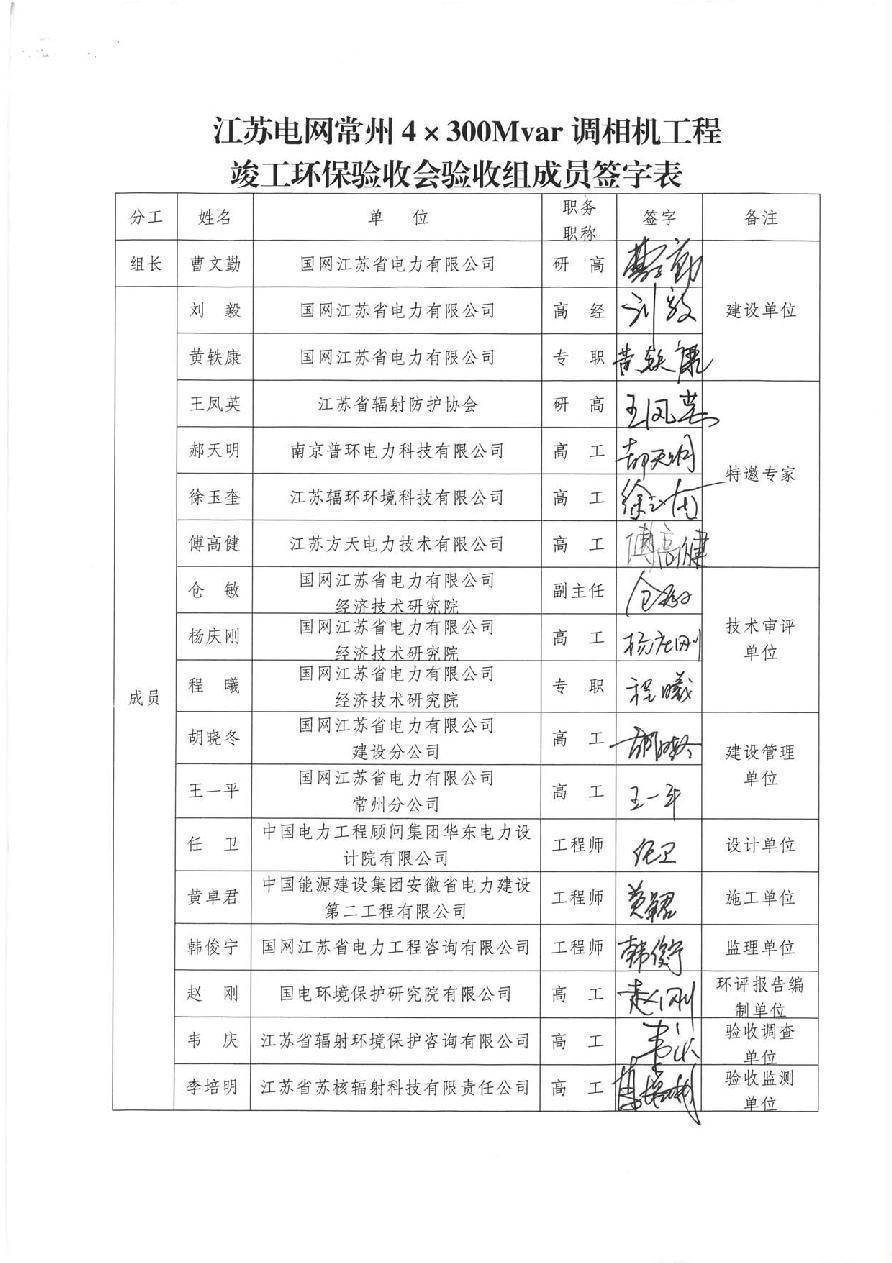 江苏电网常州 4×300Mvar 调相机工程
竣工环保验收会验收组成员签字表
分工 姓名 单 位 职务职称 签字 备注
组长 曹文勤 国网江苏省电力有限公司 研 高 建设单位
成员
刘 毅 国网江苏省电力有限公司 高 经 刘毅
黄轶康 国网江苏省电力有限公司 专 职 黄轶康
王凤英 江苏省辐射防护协会 研 高 王凤英 特邀专家
郝天明 南京普环电力科技有限公司 高 工 郝天明
徐玉奎 江苏辐环环境科技有限公司 高 工
傅高健 江苏方天电力技术有限公司 高 工 傅高健
仓 敏 国网江苏省电力有限公司 副主任 仓敏 技术审评
经济技术研究院 单位
杨庆刚 国网江苏省电力有限公司 高 工 杨庆刚
经济技术研究院
程 曦 国网江苏省电力有限公司 专 职 程曦
经济技术研究院
胡晓冬 国网江苏省电力有限公司 高 工 建设管理
建设分公司 单位
王一平 国网江苏省电力有限公司 高 工 王一平
常州分公司
任 卫 中国电力工程顾问集团华东电力设 工程师 任卫 设计单位
计院有限公司
黄卓君 中国能源建设集团安徽省电力建设 工程师 施工单位
第二工程有限公司
韩俊宁 国网江苏省电力工程咨询有限公司 工程师 韩俊宁 监理单位
赵 刚 国电环境保护研究院有限公司 高 工 赵刚 环评报告编
制单位
韦 庆 江苏省辐射环境保护咨询有限公司 高 工 验收调查
单位
李培明 江苏省苏核辐射科技有限责任公司 高 工 验收监测
单位